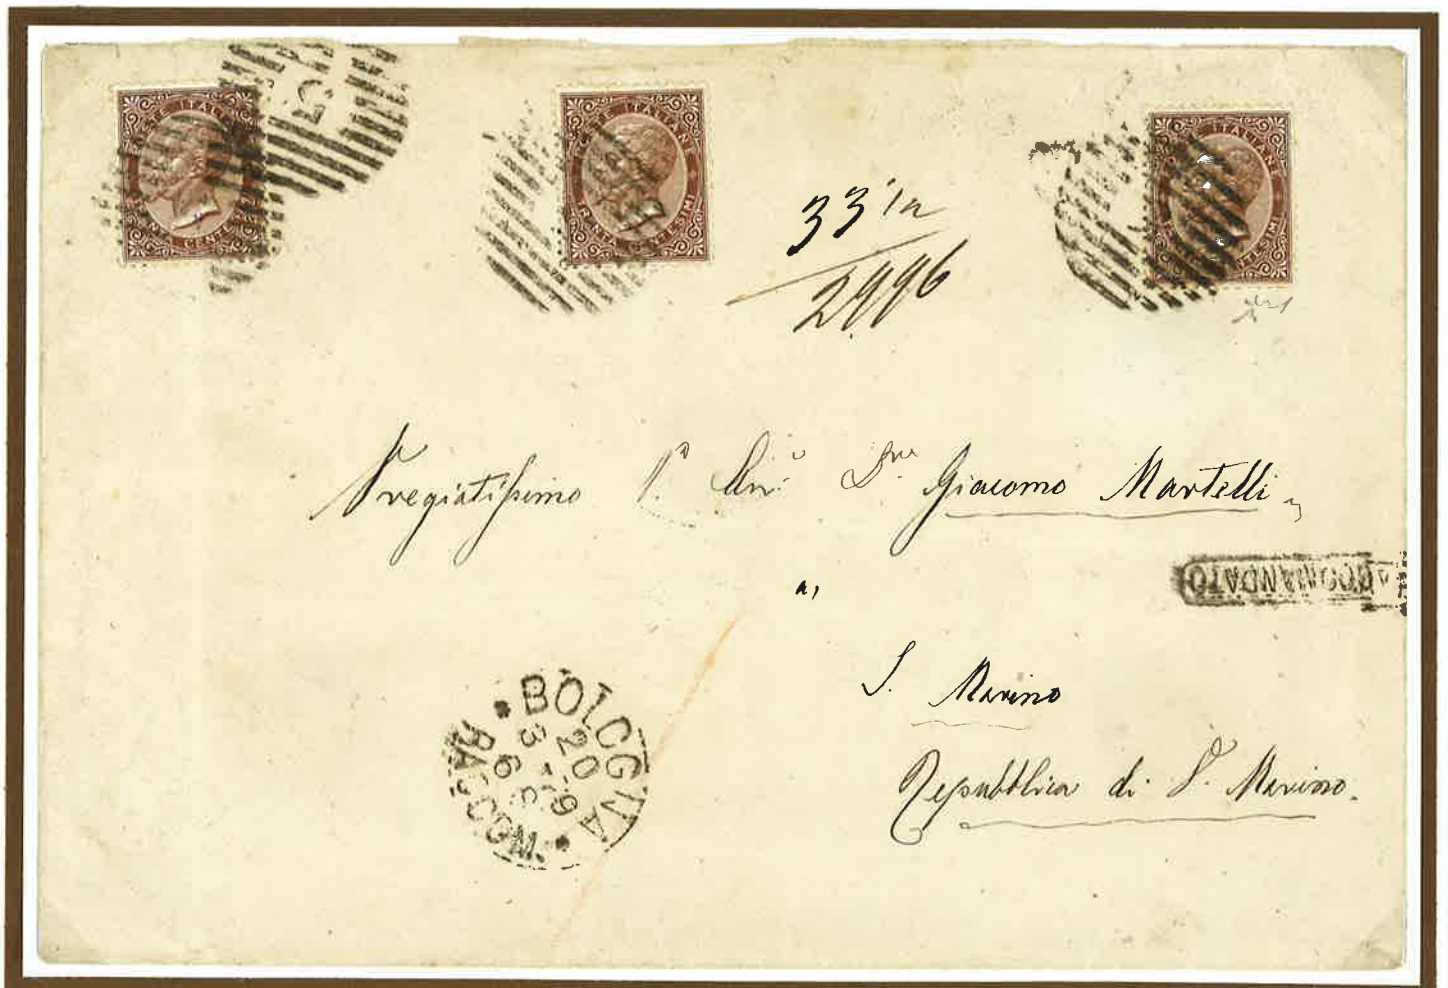 POSTE ITALIANE
TRENTA CENTESIMI
POSTE ITALIANE
TRENTA CENTESIMI
POSTE ITALIANE
CENTESIMI
2996
Pregiatissimo Giacomo Martelli
a,
RACCOMANDATO
S. Marino
Repubblica di S. Marino.
BOLOGNA
20
RACCOM